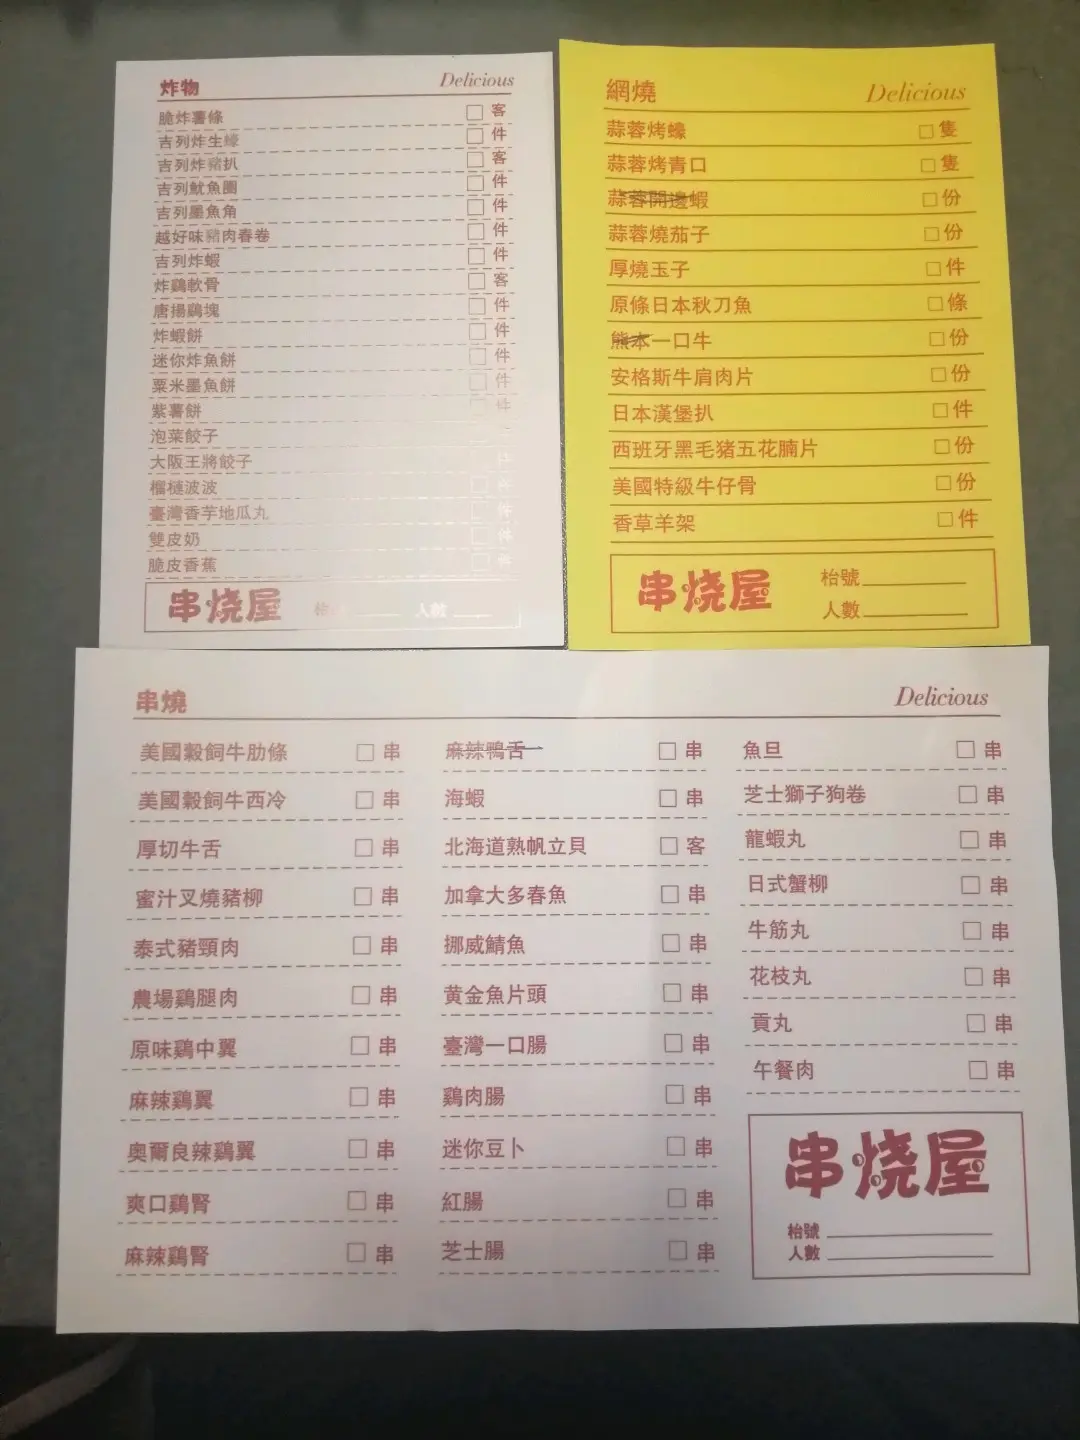 炸物 Delicious
脆炸薯條 □ 客
吉列炸生蠔 □ 件
吉列炸豬扒 □ 客
吉列魷魚圈 □ 件
吉列墨魚角 □ 件
越好味豬肉春卷 □ 件
吉列炸蝦 □ 件
炸鷄軟骨 □ 客
唐揚鷄塊 □ 件
炸蝦餅 □ 件
迷你炸魚餅 □ 件
粟米墨魚餅 □ 件
紫薯餅 □ 件
泡菜餃子
大阪王將餃子 件
榴槤波波 □ 件
臺灣香芋地瓜丸 件
雙皮奶 □ 件
脆皮香蕉 □ 件
串烧屋 枱 人數
網燒 Delicious
蒜蓉烤蠔 □ 隻
蒜蓉烤青口 □ 隻
蒜蓉開邊蝦 □ 份
蒜蓉燒茄子 □ 份
厚燒玉子 □ 件
原條日本秋刀魚 □ 條
熊本一口牛 □ 份
安格斯牛肩肉片 □ 份
日本漢堡扒 □ 件
西班牙黑毛猪五花腩片 □ 份
美國特級牛仔骨 □ 份
香草羊架 □ 件
串烧屋
枱號
人數
串燒 Delicious
美國穀飼牛肋條 □ 串
美國穀飼牛西冷 □ 串
厚切牛舌 □ 串
蜜汁叉燒豬柳 □ 串
泰式豬頸肉 □ 串
農場鷄腿肉 □ 串
原味鷄中翼 □ 串
麻辣鷄翼 □ 串
奧爾良辣鷄翼 □ 串
爽口鷄腎 □ 串
麻辣鷄腎 □ 串
麻辣鴨舌 □ 串
海蝦 □ 串
北海道熟帆立貝 □ 客
加拿大多春魚 □ 串
挪威鯖魚 □ 串
黃金魚片頭 □ 串
臺灣一口腸 □ 串
鷄肉腸 □ 串
迷你豆卜 □ 串
紅腸 □ 串
芝士腸 □ 串
魚旦 □ 串
芝士獅子狗卷 □ 串
龍蝦丸 □ 串
日式蟹柳 □ 串
牛筋丸 □ 串
花枝丸 □ 串
貢丸 □ 串
午餐肉 □ 串
串烧屋
枱號
人數